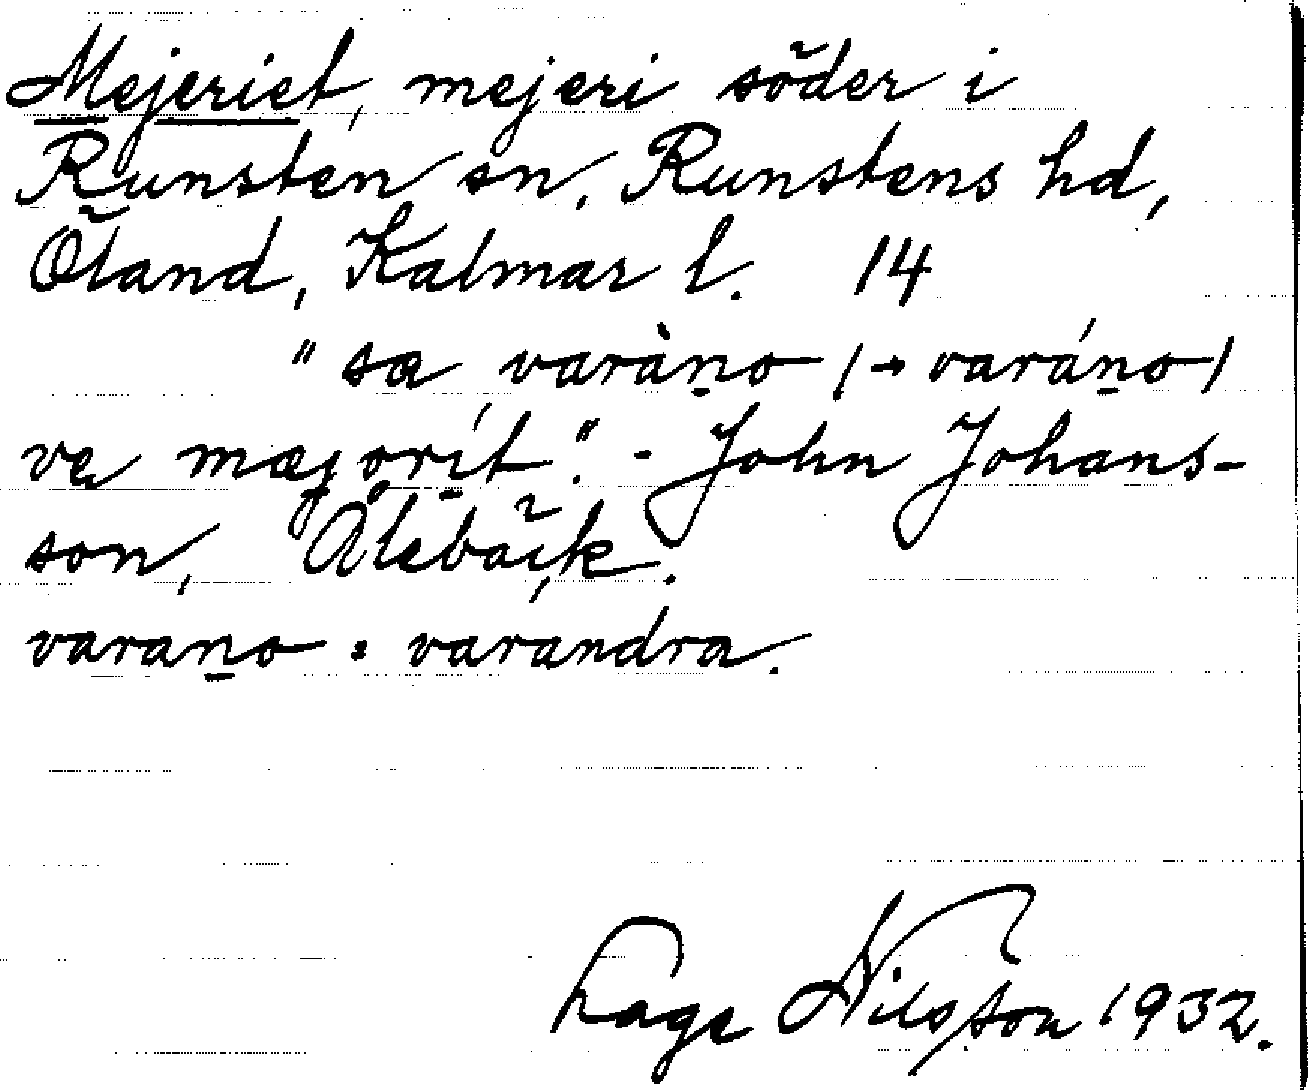 Mejeriet, mejeri söder i
Runsten sn, Runstens hd,
Öland, Kalmar l. 14
"sa varàn̲o (→ varán̲o)
vę mæjǫrí̲t". - John Johans-
son, Ålebäck.
varan̲o = varandra.
Lage Nilsson 1932.